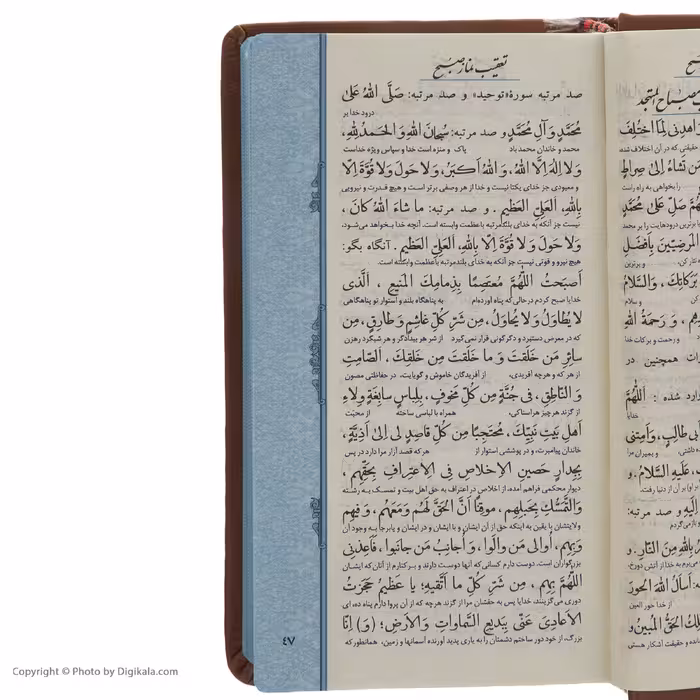 تعقیب نماز صبح
صد مرتبه سورهٔ «توحید» و صد مرتبه: صَلَّى اللهُ عَلىٰ
درود خدا بر
مُحَمَّدٍ وَآلِ مُحَمَّدٍ و صد مرتبه: سُبْحانَ اللهِ وَالْحَمْدُ لِلهِ،
محمد و خاندان محمد باد پاک و منزه است خدا و سپاس ویژه خداست
وَلا اِلٰهَ اِلَّا اللهُ، وَاللهُ اَكْبَرُ، وَلا حَوْلَ وَلا قُوَّةَ اِلّا
و معبودی جز خدای یکتا نیست و خدا از هر وصفی برتر است و هیچ قدرت و نیرویی
بِاللهِ، الْعَلِيِّ الْعَظيمِ. و صد مرتبه: ما شاءَ اللهُ كانَ،
نیست جز آنکه به خدای بلندمرتبه باعظمت وابسته است. آنچه خدا بخواهد می‌شود،
وَلا حَوْلَ وَلا قُوَّةَ اِلّا بِاللهِ، الْعَلِيِّ الْعَظيمِ. آنگاه بگو:
هیچ نیرو و قوتی نیست جز آنکه به خدای بلندمرتبه باعظمت وابسته است.
اَصْبَحْتُ اللّٰهُمَّ مُعْتَصِمًا بِذِمامِكَ الْمَنيعِ، اَلَّذى
خدایا صبح کردم درحالی‌که پناه آورده‌ام به پناهگاه بلند و استوار تو پناهگاهی
لا يُطاوَلُ وَلا يُحاوَلُ، مِنْ شَرِّ كُلِّ غاشِمٍ وَطارِقٍ، مِنْ
که در معرض دستبرد و دگرگونی قرار نمی‌گیرد از شر هر بیدادگر و هر شبگرد رهزن
سائِرِ مَنْ خَلَقْتَ وَ ما خَلَقْتَ مِنْ خَلْقِكَ، الصّامِتِ
از هر که و هرچه آفریدی، از آفریدگان خاموش و گویایت، در حفاظتی مصون
وَ النّاطِقِ، فى جُنَّةٍ مِنْ كُلِّ مَخُوفٍ، بِلِباسٍ سابِغَةٍ وِلاءِ
از گزند هر چیز هراسناکی، همراه با لباسی ساخته از محبت
اَهْلِ بَيْتِ نَبِيِّكَ، مُحْتَجِبًا مِنْ كُلِّ قاصِدٍ لى اِلىٰ اَذِيَّةٍ،
خاندان پیامبرت، و در پوششی استوار از هر که قصد آزار مرا دارد در پس
بِجِدارٍ حَصينِ الْاِخْلاصِ فِى الْاِعْتِرافِ بِحَقِّهِمْ،
دیوار محکمی فراهم آمده، از اخلاص در اعتراف به حق اهل بیت و تمسک به رشته
وَالتَّمَسُّكِ بِحَبْلِهِمْ، موقِنًا اَنَّ الْحَقَّ لَهُمْ وَمَعَهُمْ، وَفيهِمْ
ولایتشان با یقین به اینکه حق از آن ایشان و با ایشان و در ایشان و پابرجا به وجود آن
وَبِهِمْ، اُوالى مَنْ والَوْا، وَ اُجانِبُ مَنْ جانَبُوا، فَاَعِذْنى
بزرگواران است. دوست دارم کسانی که آنها دوست دارند و برکنارم از آنان که ایشان
اللّٰهُمَّ بِهِمْ، مِنْ شَرِّ كُلِّ ما اَتَّقيهِ؛ يا عَظيمُ حَجَزْتُ
دوری می‌گزینند، خدایا پس به حقشان مرا از گزند هرچه که از آن پروا دارم پناه ده، ای
الْاَعادِىَ عَنّى بِبَديعِ السَّماواتِ وَالْاَرْضِ؛ (وَ) اِنّا
بزرگ، از خود دور ساختم دشمنان را به یاری پدید آورنده آسمانها و زمین، همانطور که
٤٧
Copyright © Photo by Digikala.com